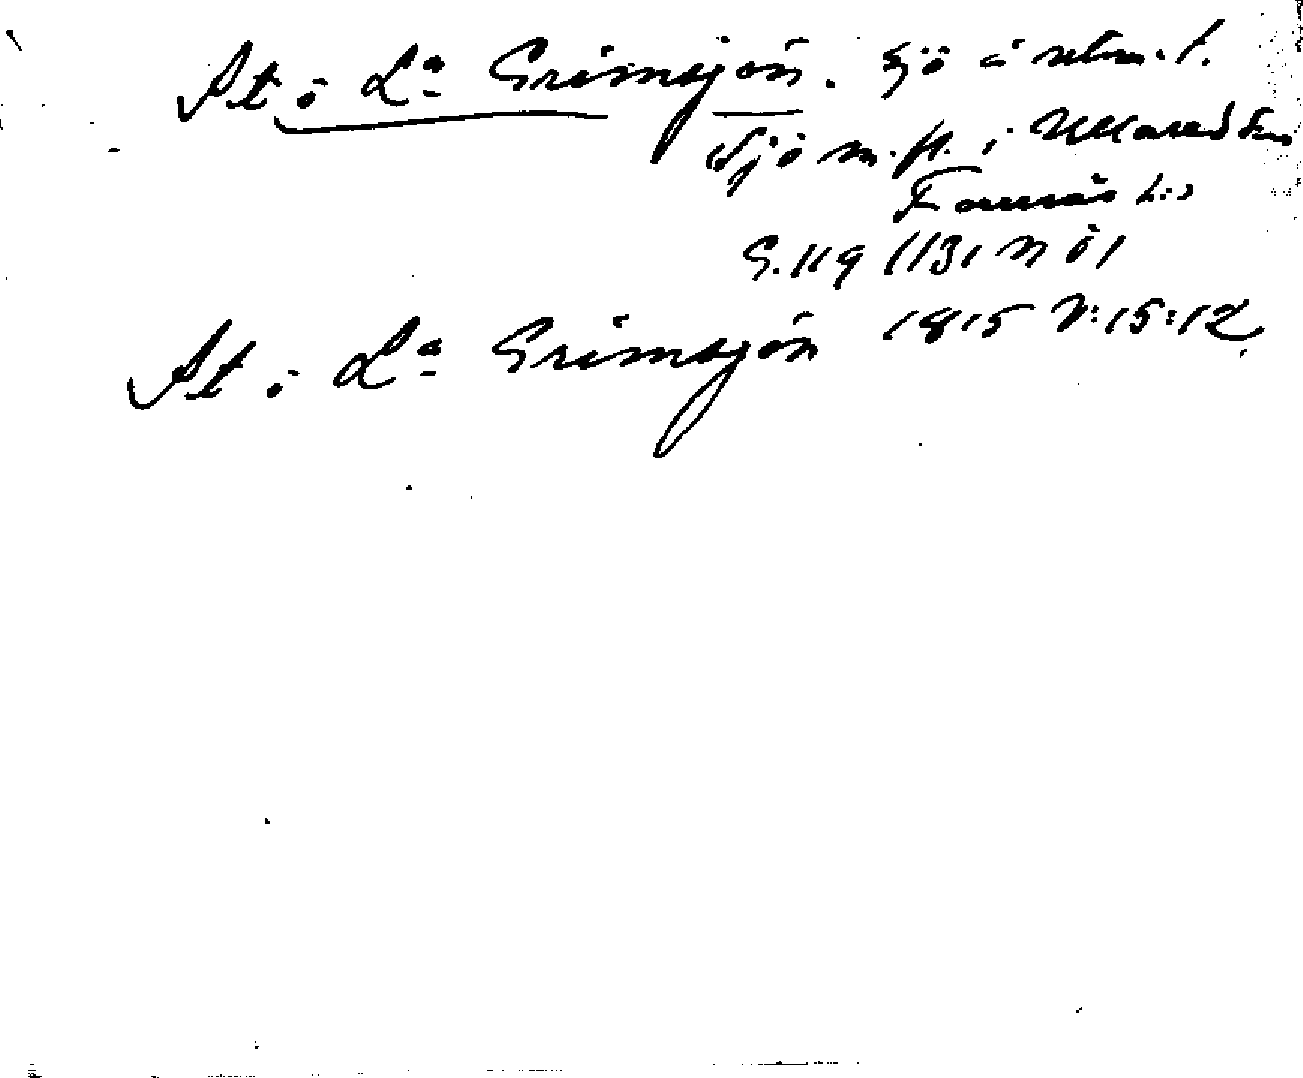 St o La Grimsjön. Sjö å utm. t.
Sjö m. fl. i Ullared sn
Faurås hd
G. 119 (131 n ö)
St o La Grimsjön 1815 V:15:12